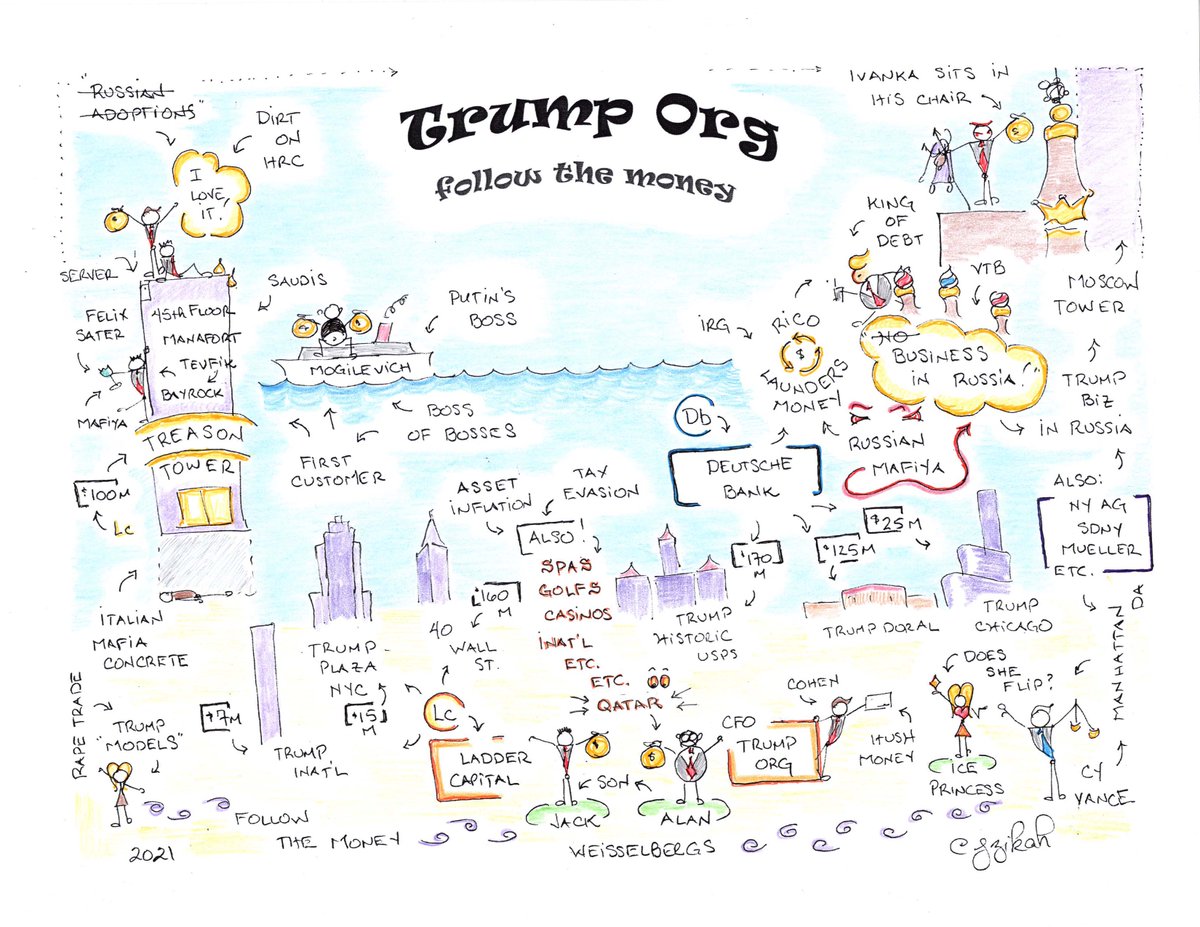 Trump Org
follow the money
"RUSSIAN
ADOPTIONS"
DIRT
ON
HRC
I
LOVE
IT.
SERVER
FELIX
SATER
MAFIYA
45TH FLOOR
MANAFORT
TEVFIK
BAYROCK
TREASON
TOWER
$100M
LC
ITALIAN
MAFIA
CONCRETE
SAUDIS
PUTIN'S
BOSS
MOGILEVICH
BOSS
OF BOSSES
FIRST
CUSTOMER
IVANKA SITS IN
HIS CHAIR
KING
OF
DEBT
VTB
"NO
BUSINESS
IN RUSSIA!"
MOSCOW
TOWER
TRUMP
BIZ
IN RUSSIA
IRG
RICO
$
LAUNDERS
MONEY
RUSSIAN
MAFIYA
Db
DEUTSCHE
BANK
ALSO:
NY AG
SDNY
MUELLER
ETC.
MANHATTAN
DA
ASSET
INFLUTION
TAX
EVASION
ALSO!
SPAS
GOLFS
CASINOS
INAT'L
ETC.
ETC.
QATAR
$170
M
$125M
$25M
TRUMP
HISTORIC
USPS
TRUMP DORAL
TRUMP
CHICAGO
TRUMP
PLAZA
NYC
$15
M
$160
M
40
WALL
ST.
LC
LADDER
CAPITAL
RAPE TRADE
TRUMP
"MODELS"
$7M
TRUMP
INAT'L
SON
JACK
ALAN
WEISSELBERGS
CFO
TRUMP
ORG
COHEN
HUSH
MONEY
DOES
SHE
FLIP?
ICE
PRINCESS
CY
VANCE
FOLLOW
THE MONEY
2021